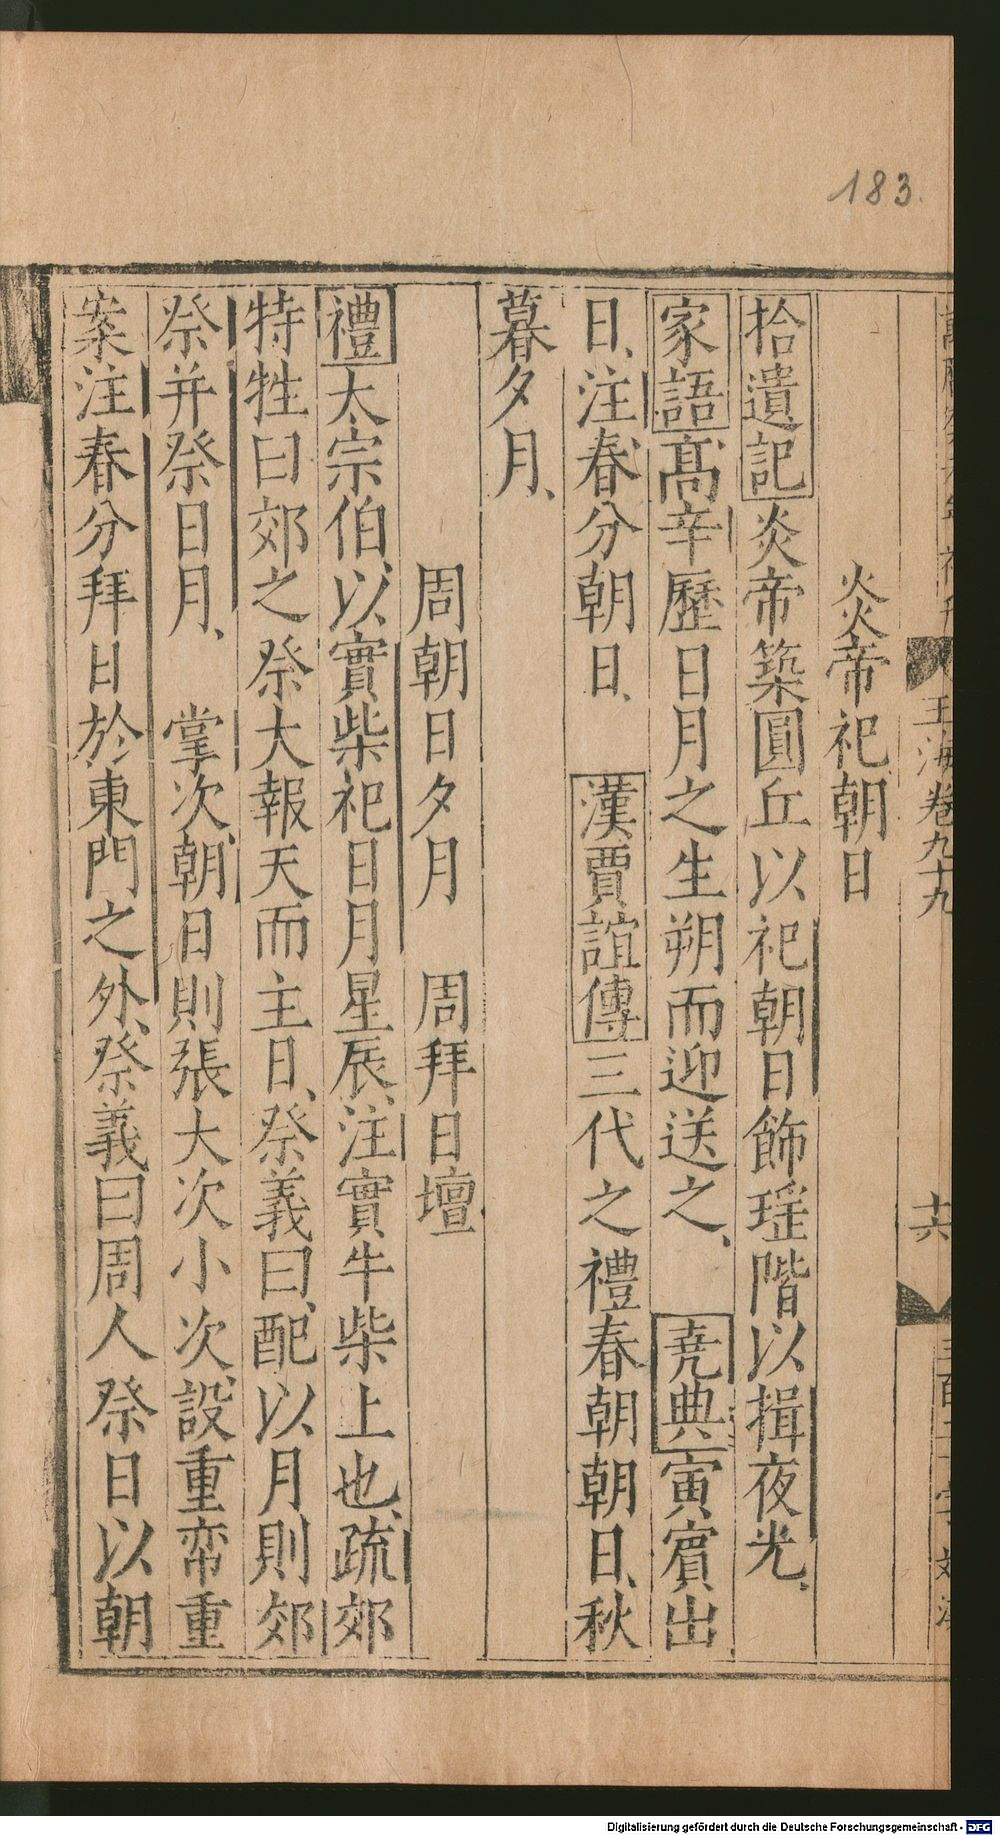 183.
玉海卷九十九
十六
炎帝祀朝日
拾遺記炎帝築圓丘以祀朝日飾瑶階以揖夜光、
家語髙辛歷日月之生朔而迎送之、堯典寅賔出
日、注春分朝日、漢賈誼傳三代之禮春朝朝日、秋
暮夕月、
周朝日夕月　周拜日壇
禮大宗伯、以實柴祀日月星辰、注實牛柴上也、疏郊
特牲曰郊之祭大報天而主日、祭義曰、配以月則郊
祭并祭日月、掌次、朝日則張大次小次、設重帟重
案注春分拜日於東門之外、祭義曰周人祭日以朝
Digitalisierung gefördert durch die Deutsche Forschungsgemeinschaft - DFG